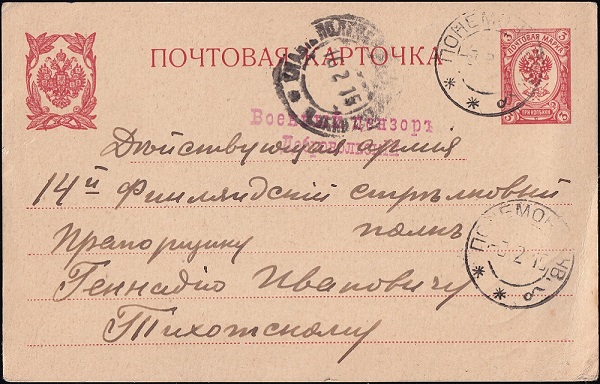 ПОЧТОВАЯ КАРТОЧКА
ПОЧТОВАЯ МАРКА
3 3
3 3
ТРИ КОПѢЙКИ
2 15
Военный Цензоръ
Дѣйствующая армія
14й Финляндскій стрѣлковый
полкъ
Прапорщику
2 15
Геннадію Ивановичу
Тихотскому